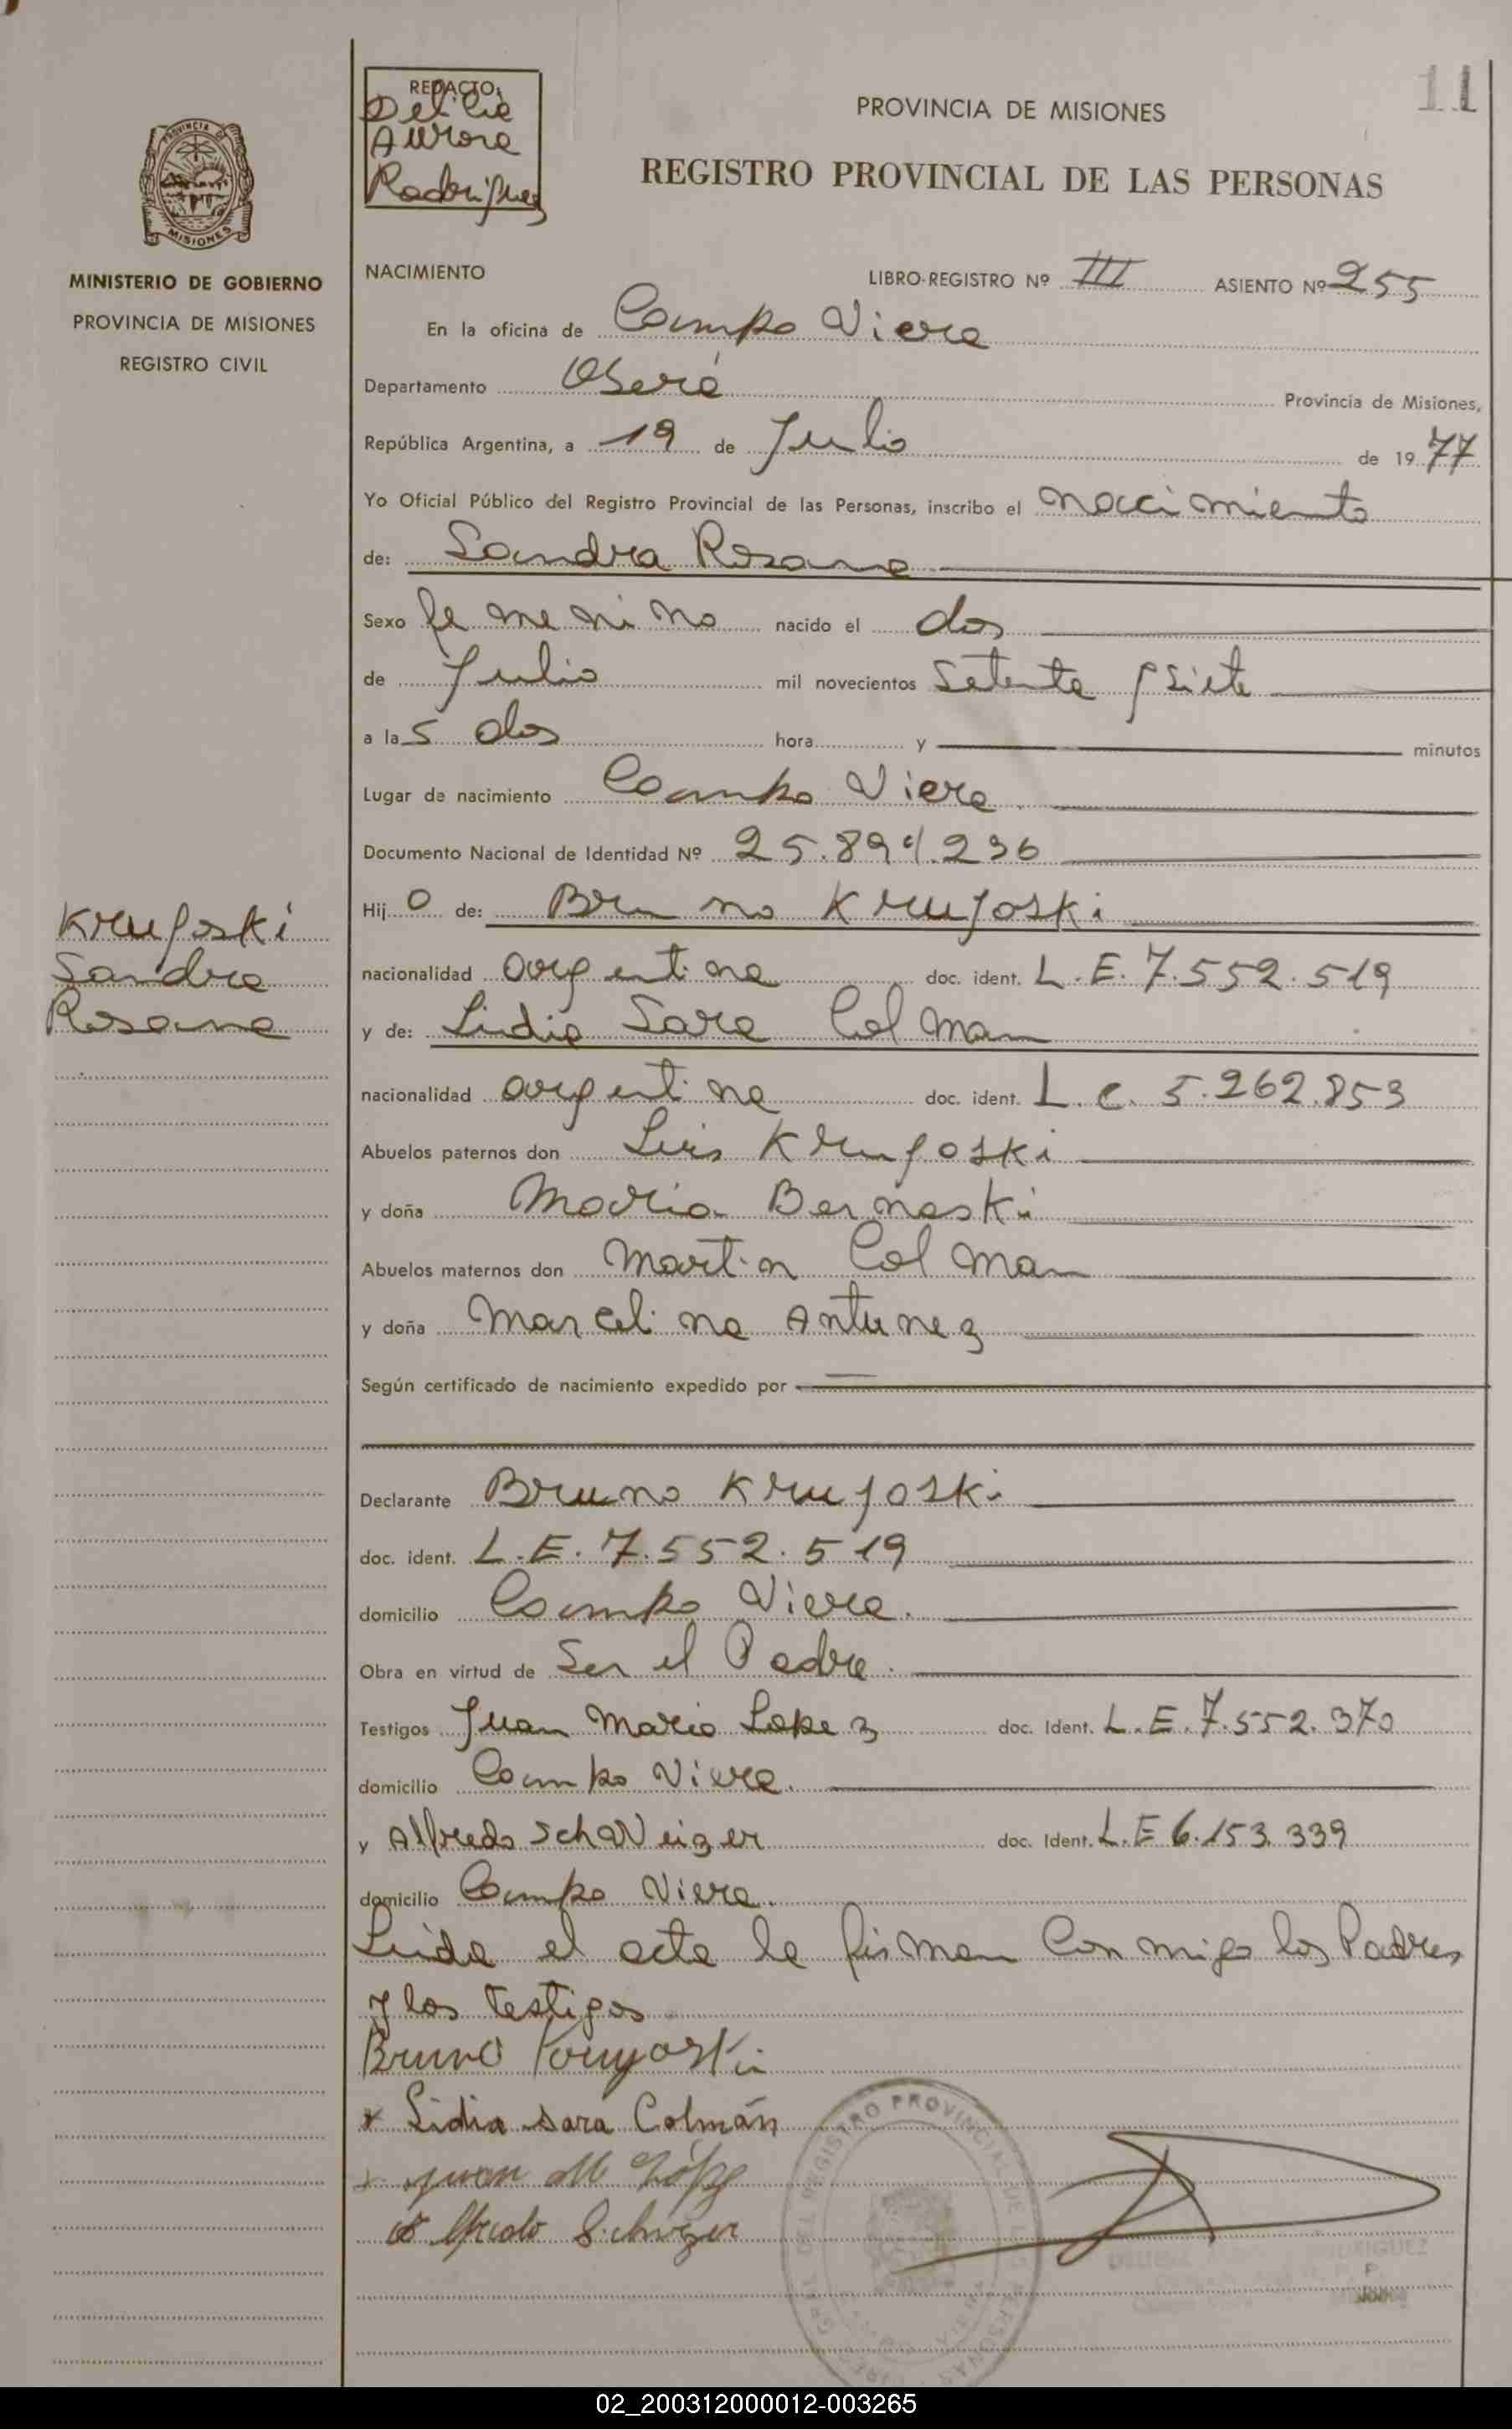 11
REDACTO
Delicia
Aurora
Rodriguez
PROVINCIA DE MISIONES
REGISTRO PROVINCIAL DE LAS PERSONAS
PROVINCIA DE
MISIONES
MINISTERIO DE GOBIERNO
PROVINCIA DE MISIONES
REGISTRO CIVIL
NACIMIENTO LIBRO-REGISTRO Nº III ASIENTO Nº 255
En la oficina de Campo Viera
Departamento Oberá Provincia de Misiones,
República Argentina, a 19 de Julio de 1977
Yo Oficial Público del Registro Provincial de las Personas, inscribo el nacimiento
de: Sandra Rosana
Sexo femenino nacido el dos
de Julio mil novecientos setenta y siete
a las dos hora y minutos
Lugar de nacimiento Campo Viera
Documento Nacional de Identidad Nº 25.894.236
Hijo de: Bruno Krujoski
Krujoski
Sandra
Rosana
nacionalidad argentina doc. ident. L.E. 7.552.519
y de: Lidia Sara Colman
nacionalidad argentina doc. ident. L.C. 5.262.853
Abuelos paternos don Luis Krujoski
y doña Maria Bernaski
Abuelos maternos don Martin Colman
y doña Marcelina Antunez
Según certificado de nacimiento expedido por
Declarante Bruno Krujoski
doc. ident. L.E. 7.552.519
domicilio Campo Viera.
Obra en virtud de Ser el Padre.
Testigos Juan Mario Lopez doc. Ident. L.E. 7.552.370
domicilio Campo Viera.
y Alfredo Schaveizer doc. Ident. L.E 6.153.339
domicilio Campo Viera.
Leida el acta la firman conmigo los Padres
y los testigos
Bruno
x Lidia Sara Colmán
Juan M López
Alfredo
REGISTRO PROVINCIAL DE LAS PERSONAS
RODRIGUEZ
02_200312000012-003265